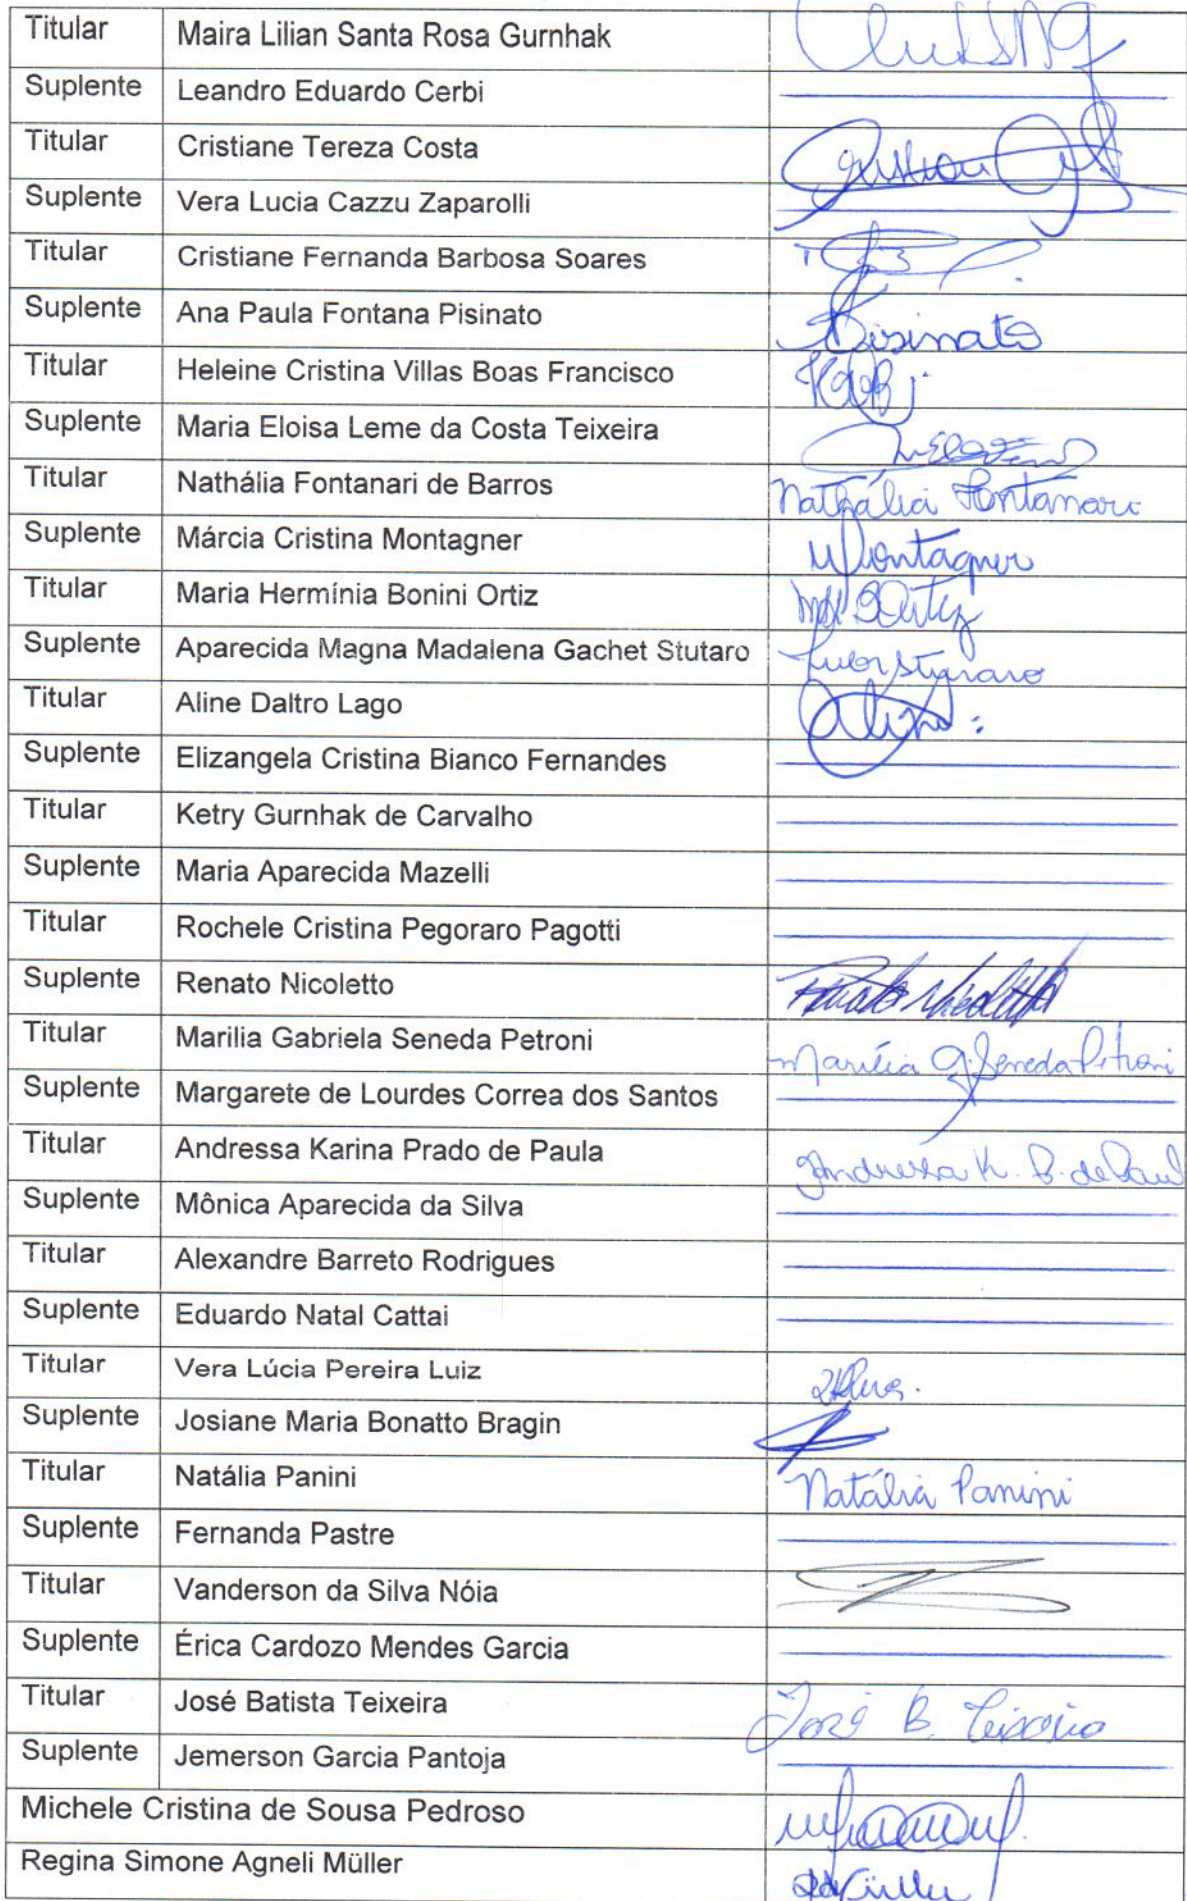 Titular Maira Lilian Santa Rosa Gurnhak
Suplente Leandro Eduardo Cerbi
Titular Cristiane Tereza Costa
Suplente Vera Lucia Cazzu Zaparolli
Titular Cristiane Fernanda Barbosa Soares
Suplente Ana Paula Fontana Pisinato Pisinato
Titular Heleine Cristina Villas Boas Francisco
Suplente Maria Eloisa Leme da Costa Teixeira
Titular Nathália Fontanari de Barros Nathália Fontanari
Suplente Márcia Cristina Montagner Montagner
Titular Maria Hermínia Bonini Ortiz Ortiz
Suplente Aparecida Magna Madalena Gachet Stutaro
Titular Aline Daltro Lago Aline
Suplente Elizangela Cristina Bianco Fernandes
Titular Ketry Gurnhak de Carvalho
Suplente Maria Aparecida Mazelli
Titular Rochele Cristina Pegoraro Pagotti
Suplente Renato Nicoletto Renato Nicoletto
Titular Marilia Gabriela Seneda Petroni Marília G. Seneda Petroni
Suplente Margarete de Lourdes Correa dos Santos
Titular Andressa Karina Prado de Paula Andressa K. P. de Paul
Suplente Mônica Aparecida da Silva
Titular Alexandre Barreto Rodrigues
Suplente Eduardo Natal Cattai
Titular Vera Lúcia Pereira Luiz
Suplente Josiane Maria Bonatto Bragin
Titular Natália Panini Natália Panini
Suplente Fernanda Pastre
Titular Vanderson da Silva Nóia
Suplente Érica Cardozo Mendes Garcia
Titular José Batista Teixeira José B. Teixeira
Suplente Jemerson Garcia Pantoja
Michele Cristina de Sousa Pedroso
Regina Simone Agneli Müller